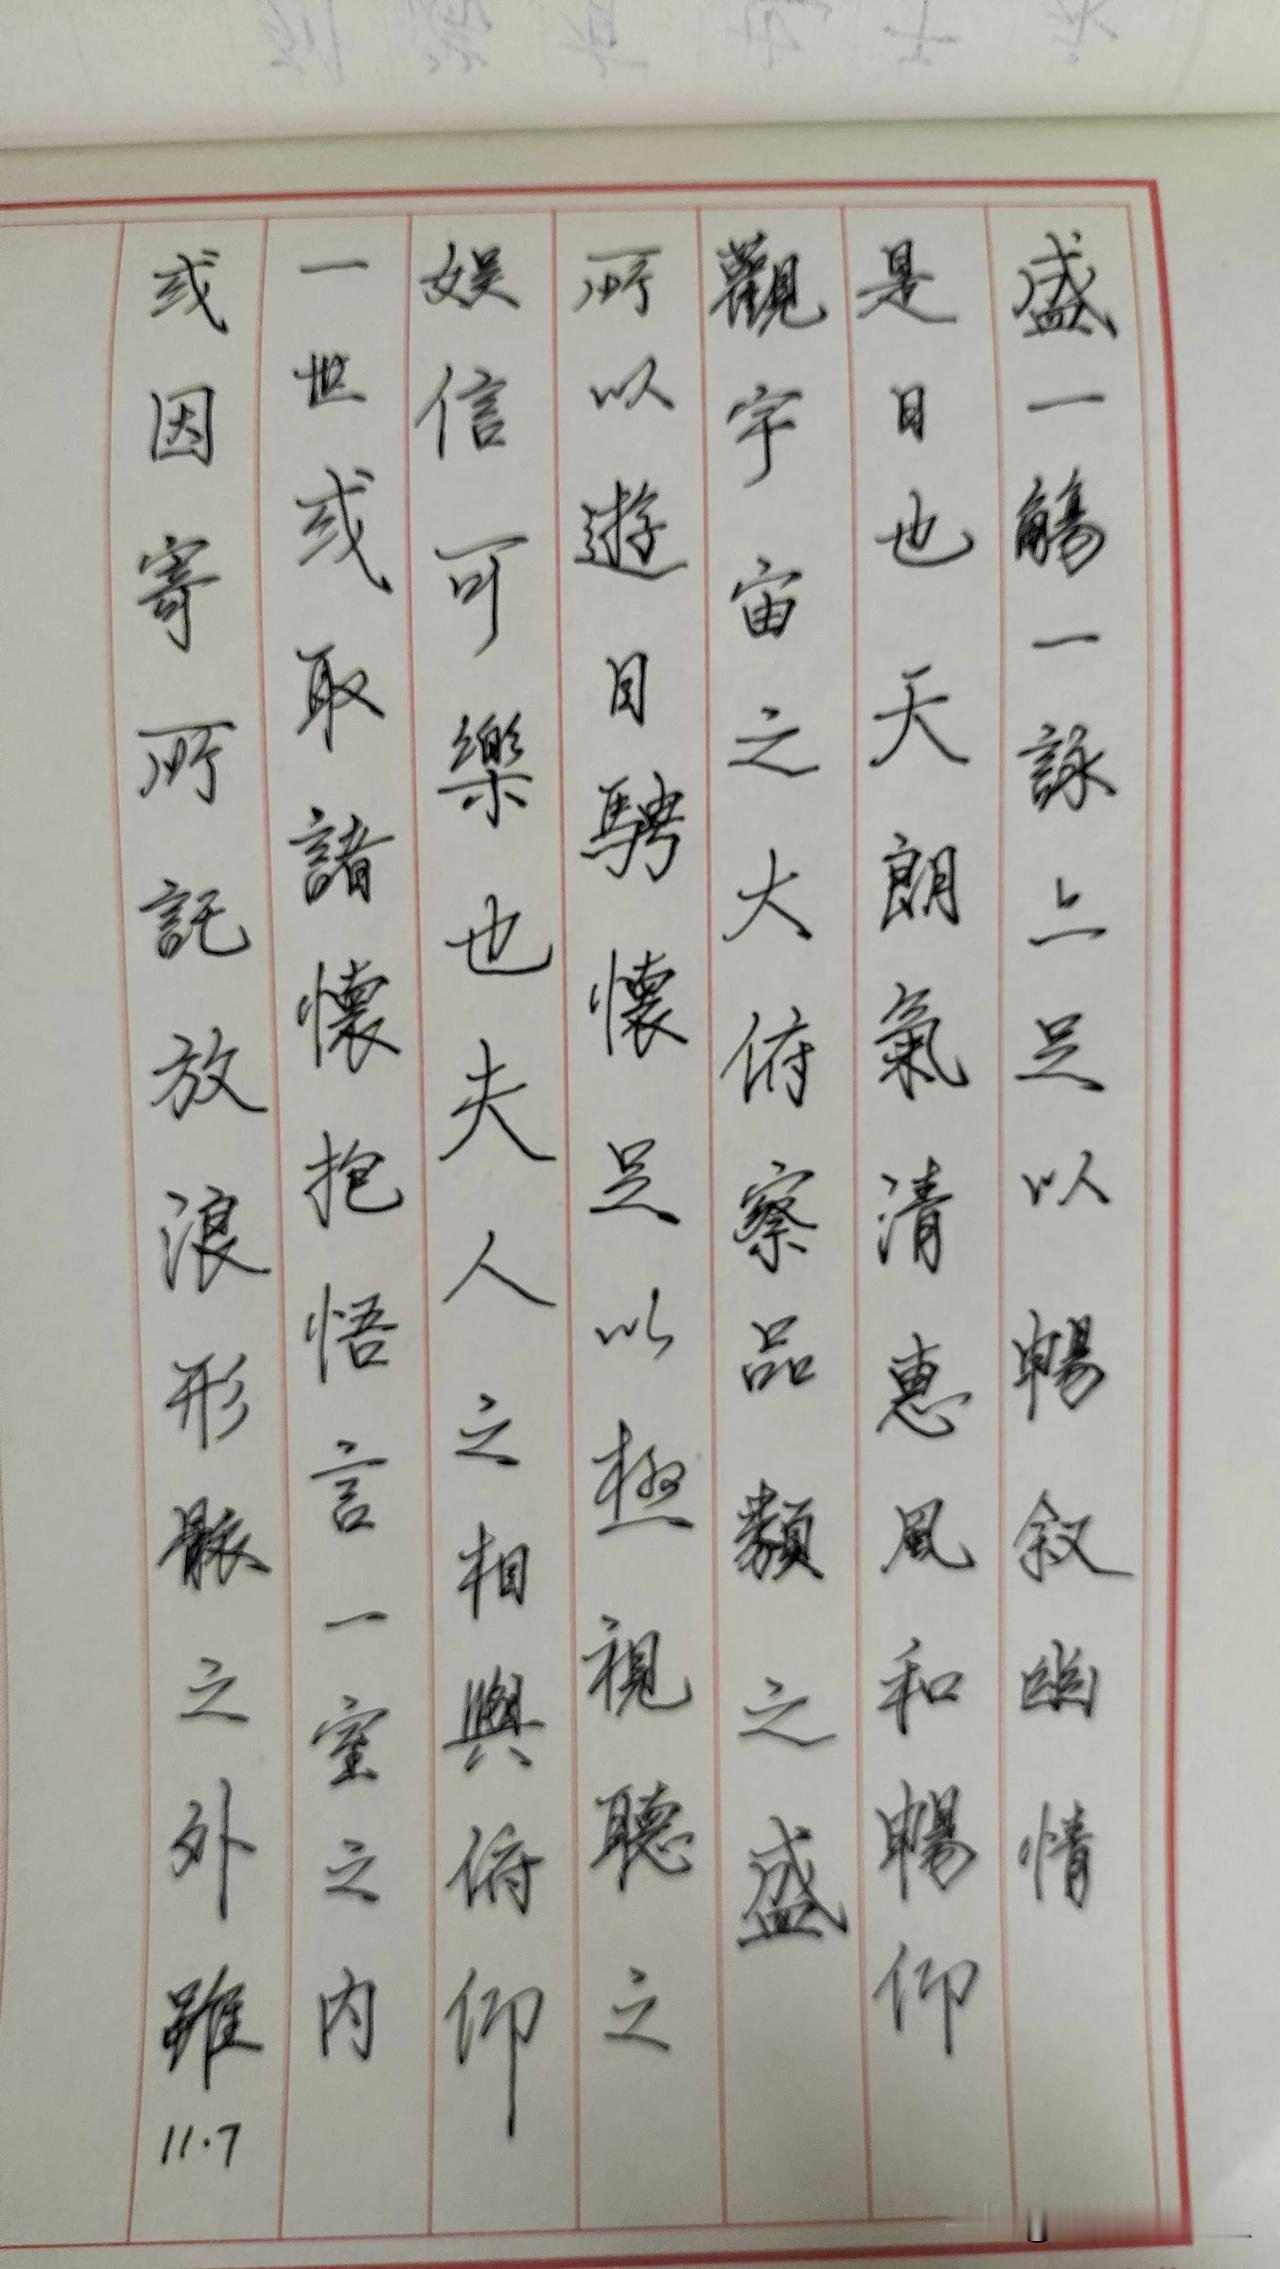 盛一觴一詠上足以暢叙幽情
是日也天朗氣清惠風和暢仰
觀宇宙之大俯察品類之盛
所以遊目騁懷足以極視聽之
娱信可樂也夫人之相與俯仰
一世或取諸懷抱悟言一室之内
或因寄所託放浪形骸之外雖
11.7